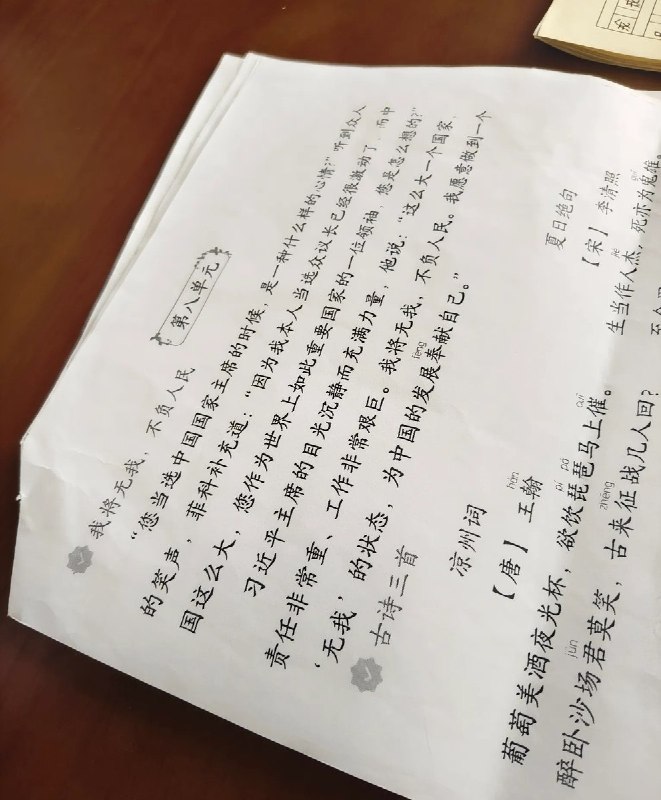 第八单元
我将无我，不负人民
“您当选中国国家主席的时候，是一种什么样的心情？”听到众人
的笑声，菲科补充道：“因为我本人当选众议长已经很激动了，而中
国这么大，您作为世界上如此重要国家的一位领袖，您是怎么想的？”
习近平主席的目光沉静而充满力量，他说：“这么大一个国家，
责任非常重、工作非常艰巨。我将无我，不负人民。我愿意做到一个
‘无我’的状态，为中国的发展奉献自己。”
fèng
古诗三首
凉州词
hàn
【唐】王翰
pí pá
cuī
葡萄美酒夜光杯，欲饮琵琶马上催。
jūn
zhēng
醉卧沙场君莫笑，古来征战几人回？
夏日绝句
【宋】李清照
jié
guǐ
生当作人杰，死亦为鬼雄